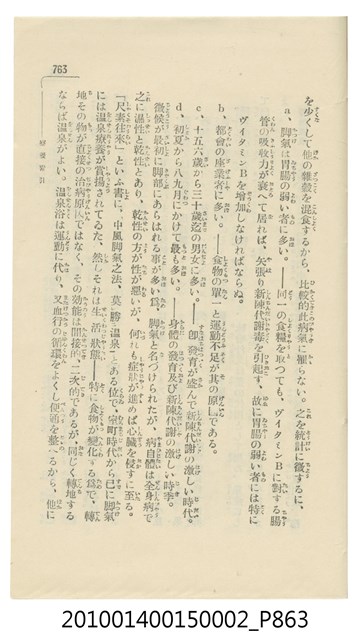 を少くして他の雜穀を混食するから、比較的此病氣に罹らない。之を統計に徵するに、
a、脚氣は胃腸の弱い者に多い。——同一の食糧を取つても、ヴイタミンBに對する腸
管の吸收力が衰へて居れば、矢張り新陳代謝毒を引起す、故に胃腸の弱い者には特に
ヴイタミンBを增加しなければならぬ。
b、都會の座業者に多い。——食物の單一と運動不足が其の原因である。
c、十五六歲から三十歲迄の男女に多い。——卽發育が盛んで新陳代謝の激しい時代。
d、初夏から八九月にかけて最も多い。——身體の發育及び新陳代謝の激しい時季。
徵候が最初に脚部にあらはれる事が多い爲、脚氣と名づけられたが、病自體は全身病で
之に濕性と乾性とあり、乾性の方が性が惡いが、何れも症狀が進めば心臟を侵すに至る。
「尺素往來」といふ書に、中風脚氣之法、莫勝溫泉とある位で、室町時代から已に脚氣
には溫泉療養が賞揚されてゐた、然しそれは生活狀態——特に食物が變化する爲で、轉
地その物が直接の治病原因ではなく、その効能は間接的、二次的であるが、同じく轉地する
ならば溫泉がよい。溫泉浴は運動に代り、又血行の循環をよくし便通を整へるから、他に
763
療養索引
201001400150002_P863